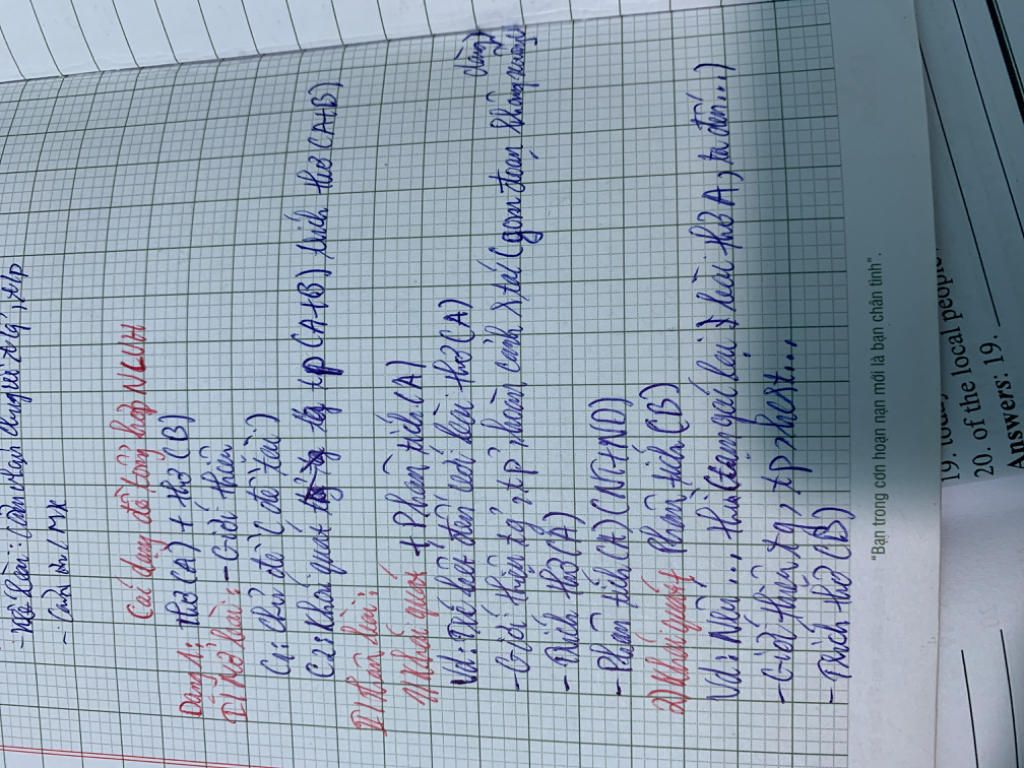 - Kết bài: Cảm nhận chung về tg, tp
- Liên hệ / MR
Các dạng đề tổng hợp NLVH
Dạng 1: thơ (A) + thơ (B)
I) Mở bài: - Giới thiệu
C1: Chủ đề (đề tài)
C2: Khái quát tg tp (A+B) trích thơ (A+B)
II) Thân bài:
1) Khái quát + Phân tích (A)
Vd: Để biết đến với bài thơ (A)
- Giới thiệu tg, tp, hoàn cảnh stác (gọn đoạn không xuống dòng)
- Trích thơ (A)
- Phân tích (A) (NT+ND)
2) Khái quát + Phân tích (B)
Vd: Nếu ... thì (tóm gọn lại) bài thơ A, ta đến...)
- Giới thiệu tg, tp, hcst...
- Trích thơ (B)
"Bạn trong cơn hoạn nạn mới là bạn chân tình".
19.
20. of the local people
Answers: 19.